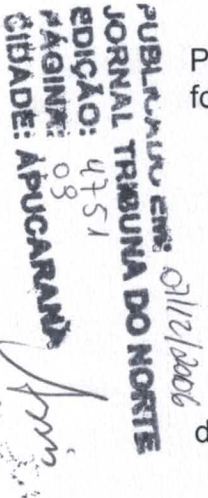 PUBLICADO EM: 07/12/2006
JORNAL TRIBUNA DO NORTE
EDIÇÃO: 4751
PÁGINA: 09
CIDADE: APUCARANA
P
fo
d